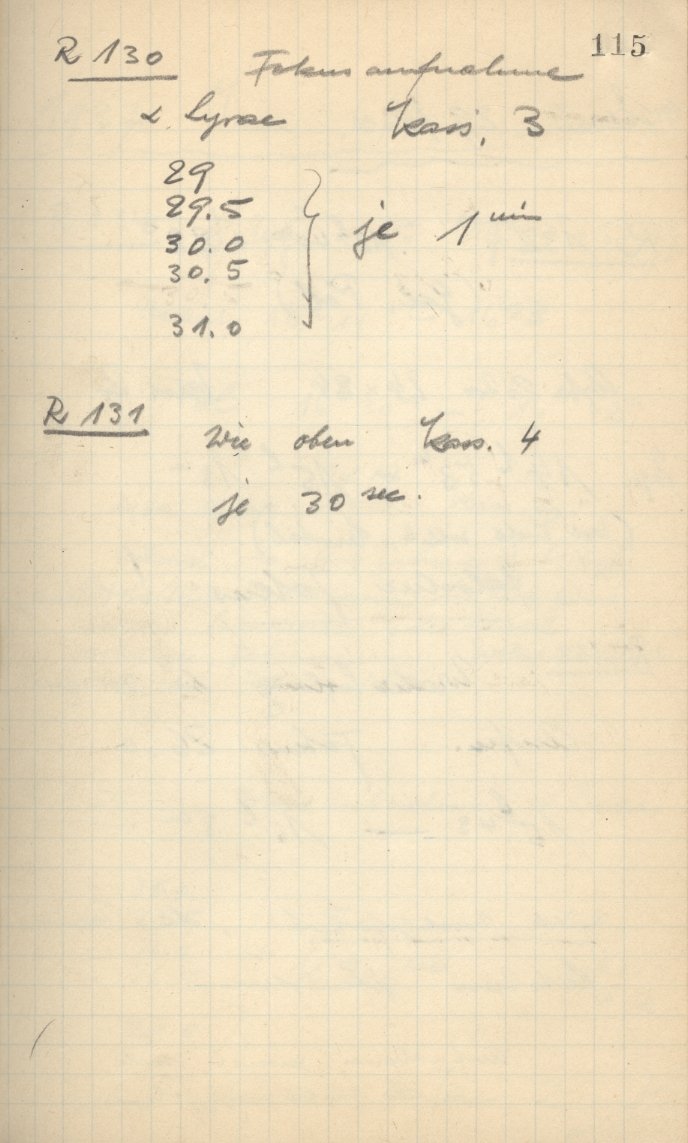 115
R 130 Fokusaufnahme
α Lyrae Kass. 3
29
29.5
30.0 je 1 min
30.5
31.0
R 131 Wie oben Kass. 4
je 30 sec.